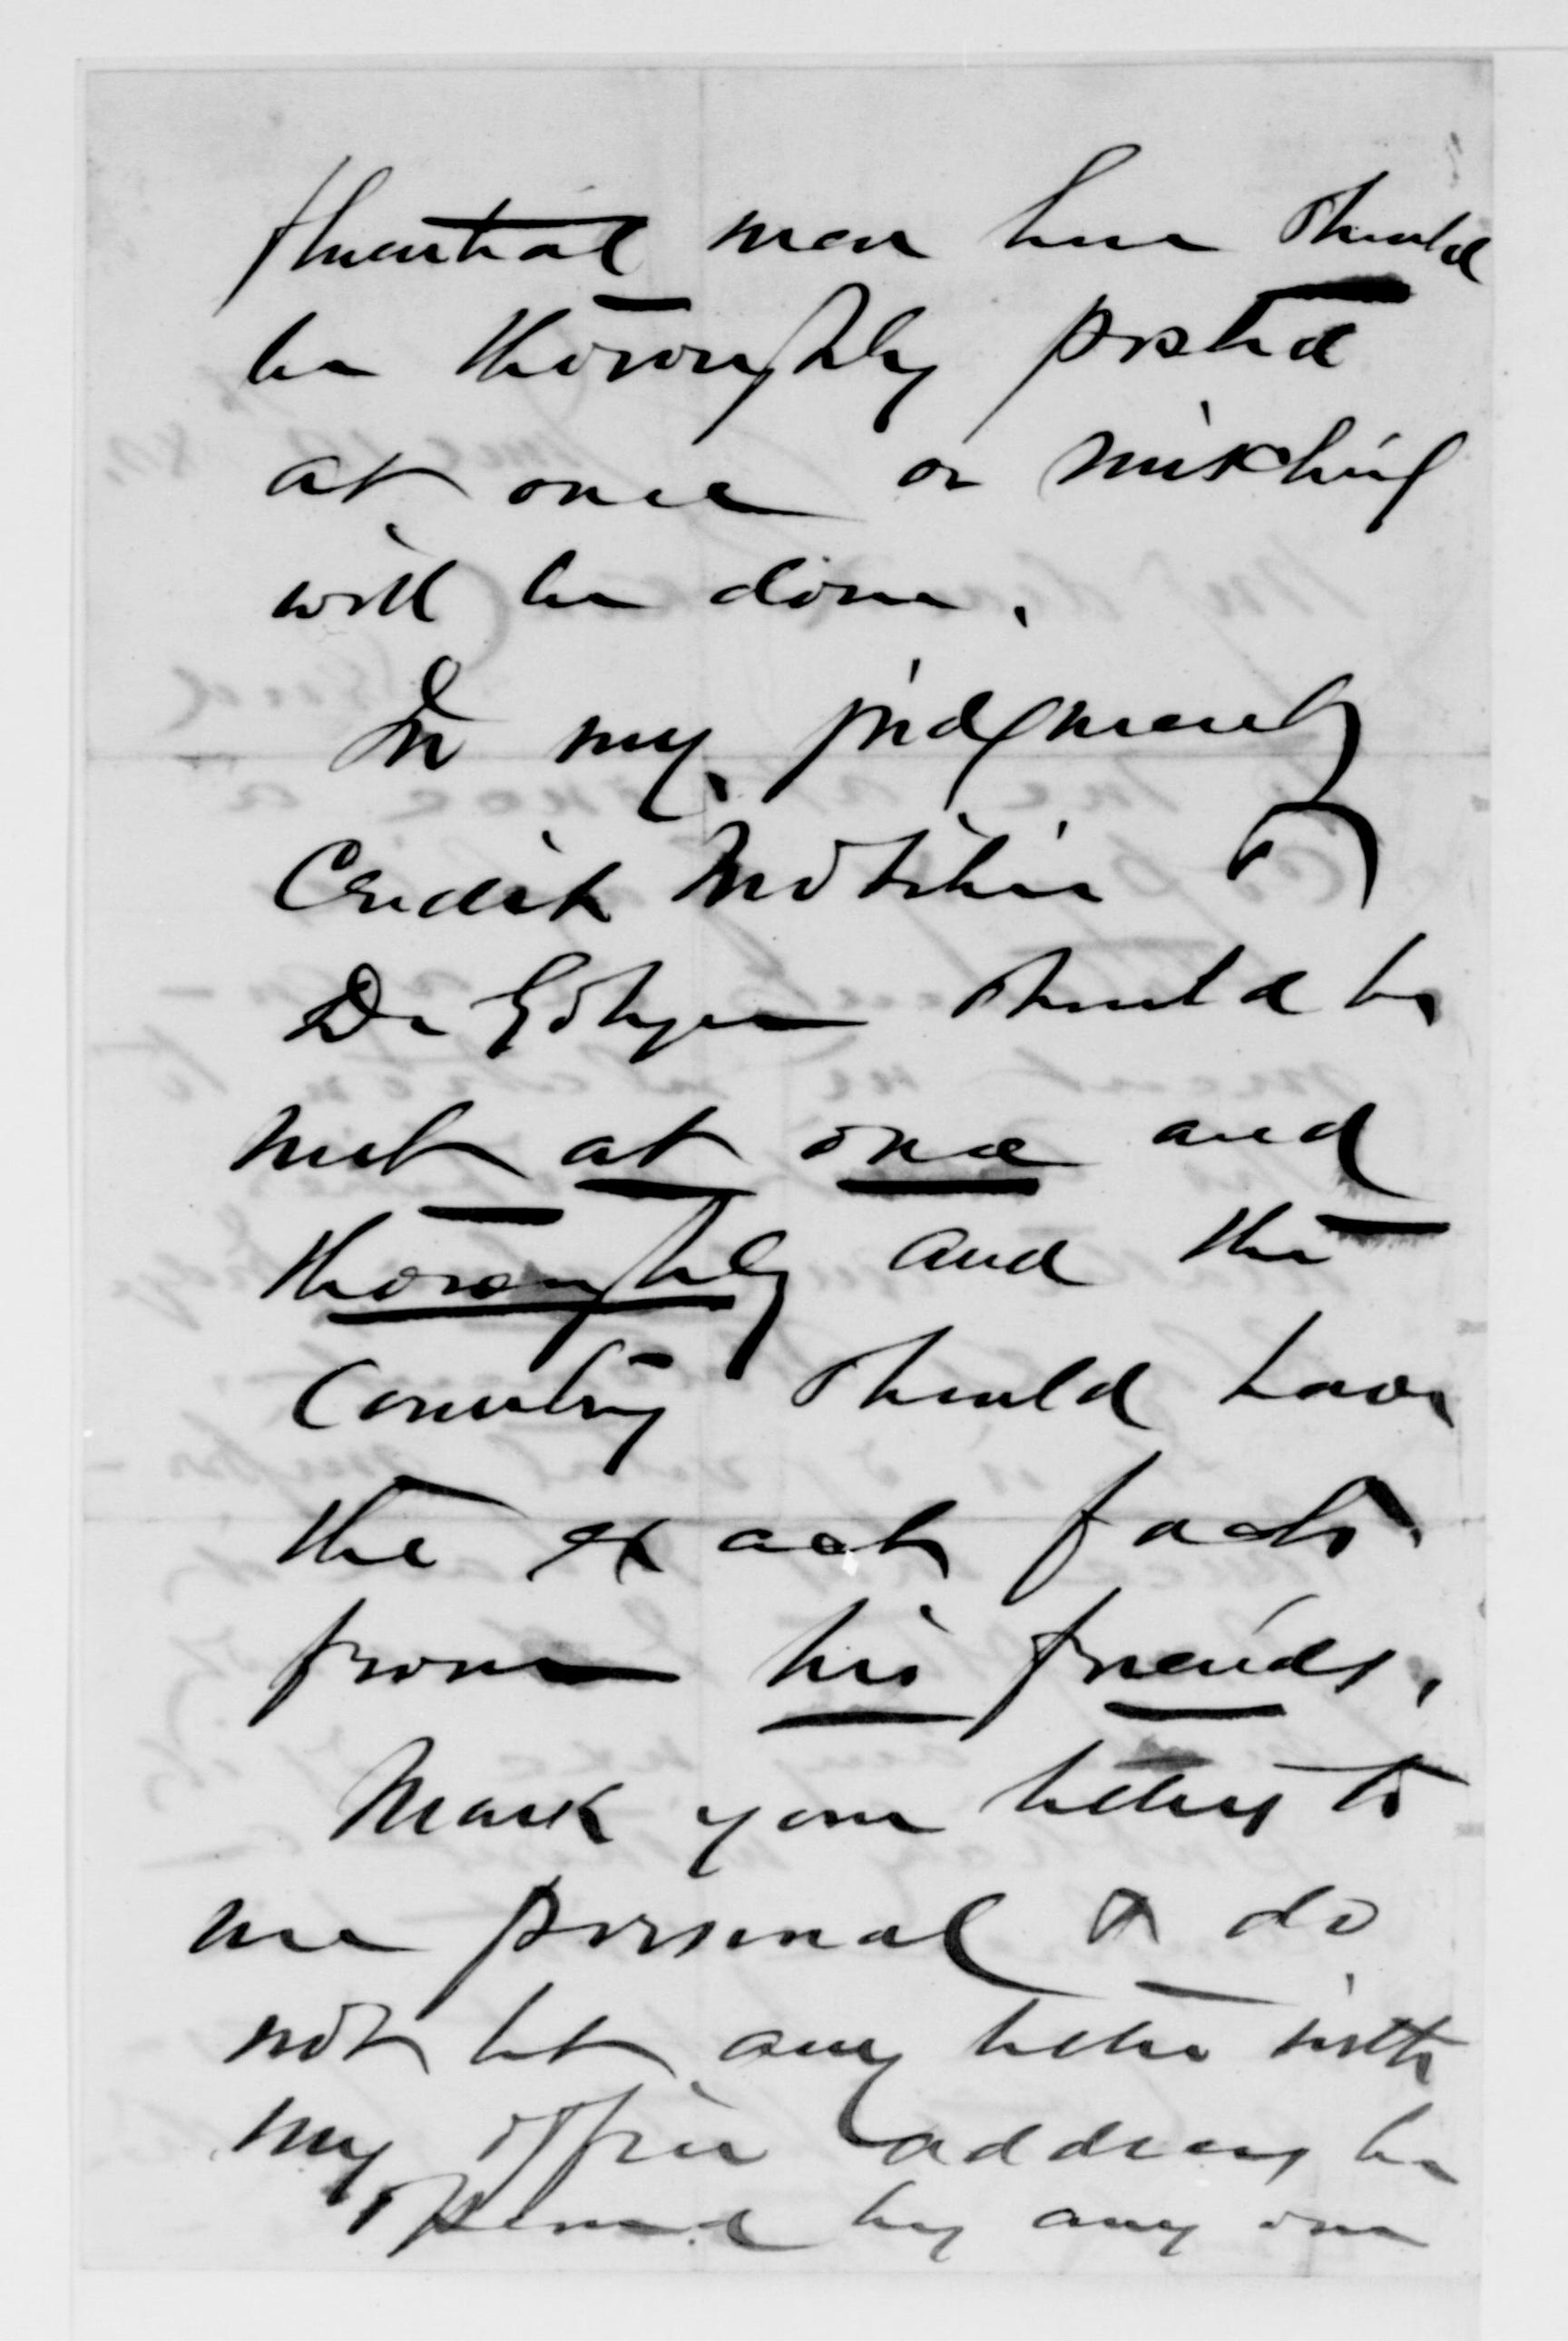 fluential men here should
be thoroughly posted
at once or mischief
will be done.
In my judgment
Credit Mobilier &
De Golyer should be
met at once and
thoroughly and the
Country should have
the exact facts
from his friends.
Mark your letters to
me personal & do
not let any letter with
my office address be
opened by any one